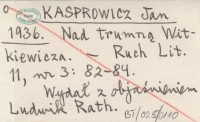 KASPROWICZ Jan
1936. Nad trumną Wit-
kiewicza. — Ruch Lit.
11, nr 3: 82-84.
Wydał z objaśnieniem
Ludwik Rath.
BJ/025/110